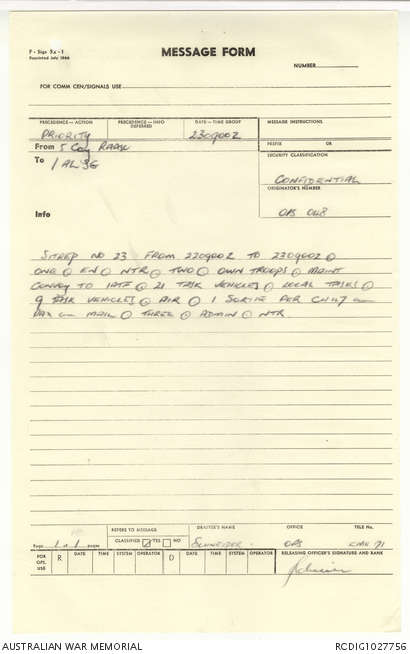 F - Sigs 5x-1
Reprinted July 1966
MESSAGE FORM
NUMBER
FOR COMM CEN/SIGNALS USE
PRECEDENCE—ACTION
PRECEDENCE—INFO
DEFERRED
DATE—TIME GROUP
MESSAGE INSTRUCTIONS
PRIORITY
230900Z
From 5 Coy RAASC
PREFIX
OR
To 1 ALSG
SECURITY CLASSIFICATION
CONFIDENTIAL
ORIGINATOR'S NUMBER
Info
OPS 048
SITREP NO 23 FROM 220900Z TO 230900Z
ONE EN NTR TWO OWN TROOPS MAINT
CONVOY TO 1ATF 21 TASK VEHICLES LOCAL TASKS
9 TASK VEHICLES AIR 1 SORTIE PER CH47
PAX MAIL THREE ADMIN NTR
REFERS TO MESSAGE
DRAFTER'S NAME
OFFICE
TELE No.
Page 1 of 1 PAGES
CLASSIFIED YES NO
SCHNEIDER
OPS
FOR
OPS.
USE
R
DATE
TIME
SYSTEM
OPERATOR
D
DATE
TIME
SYSTEM
OPERATOR
RELEASING OFFICER'S SIGNATURE AND RANK
AUSTRALIAN WAR MEMORIAL
RCDIG1027756